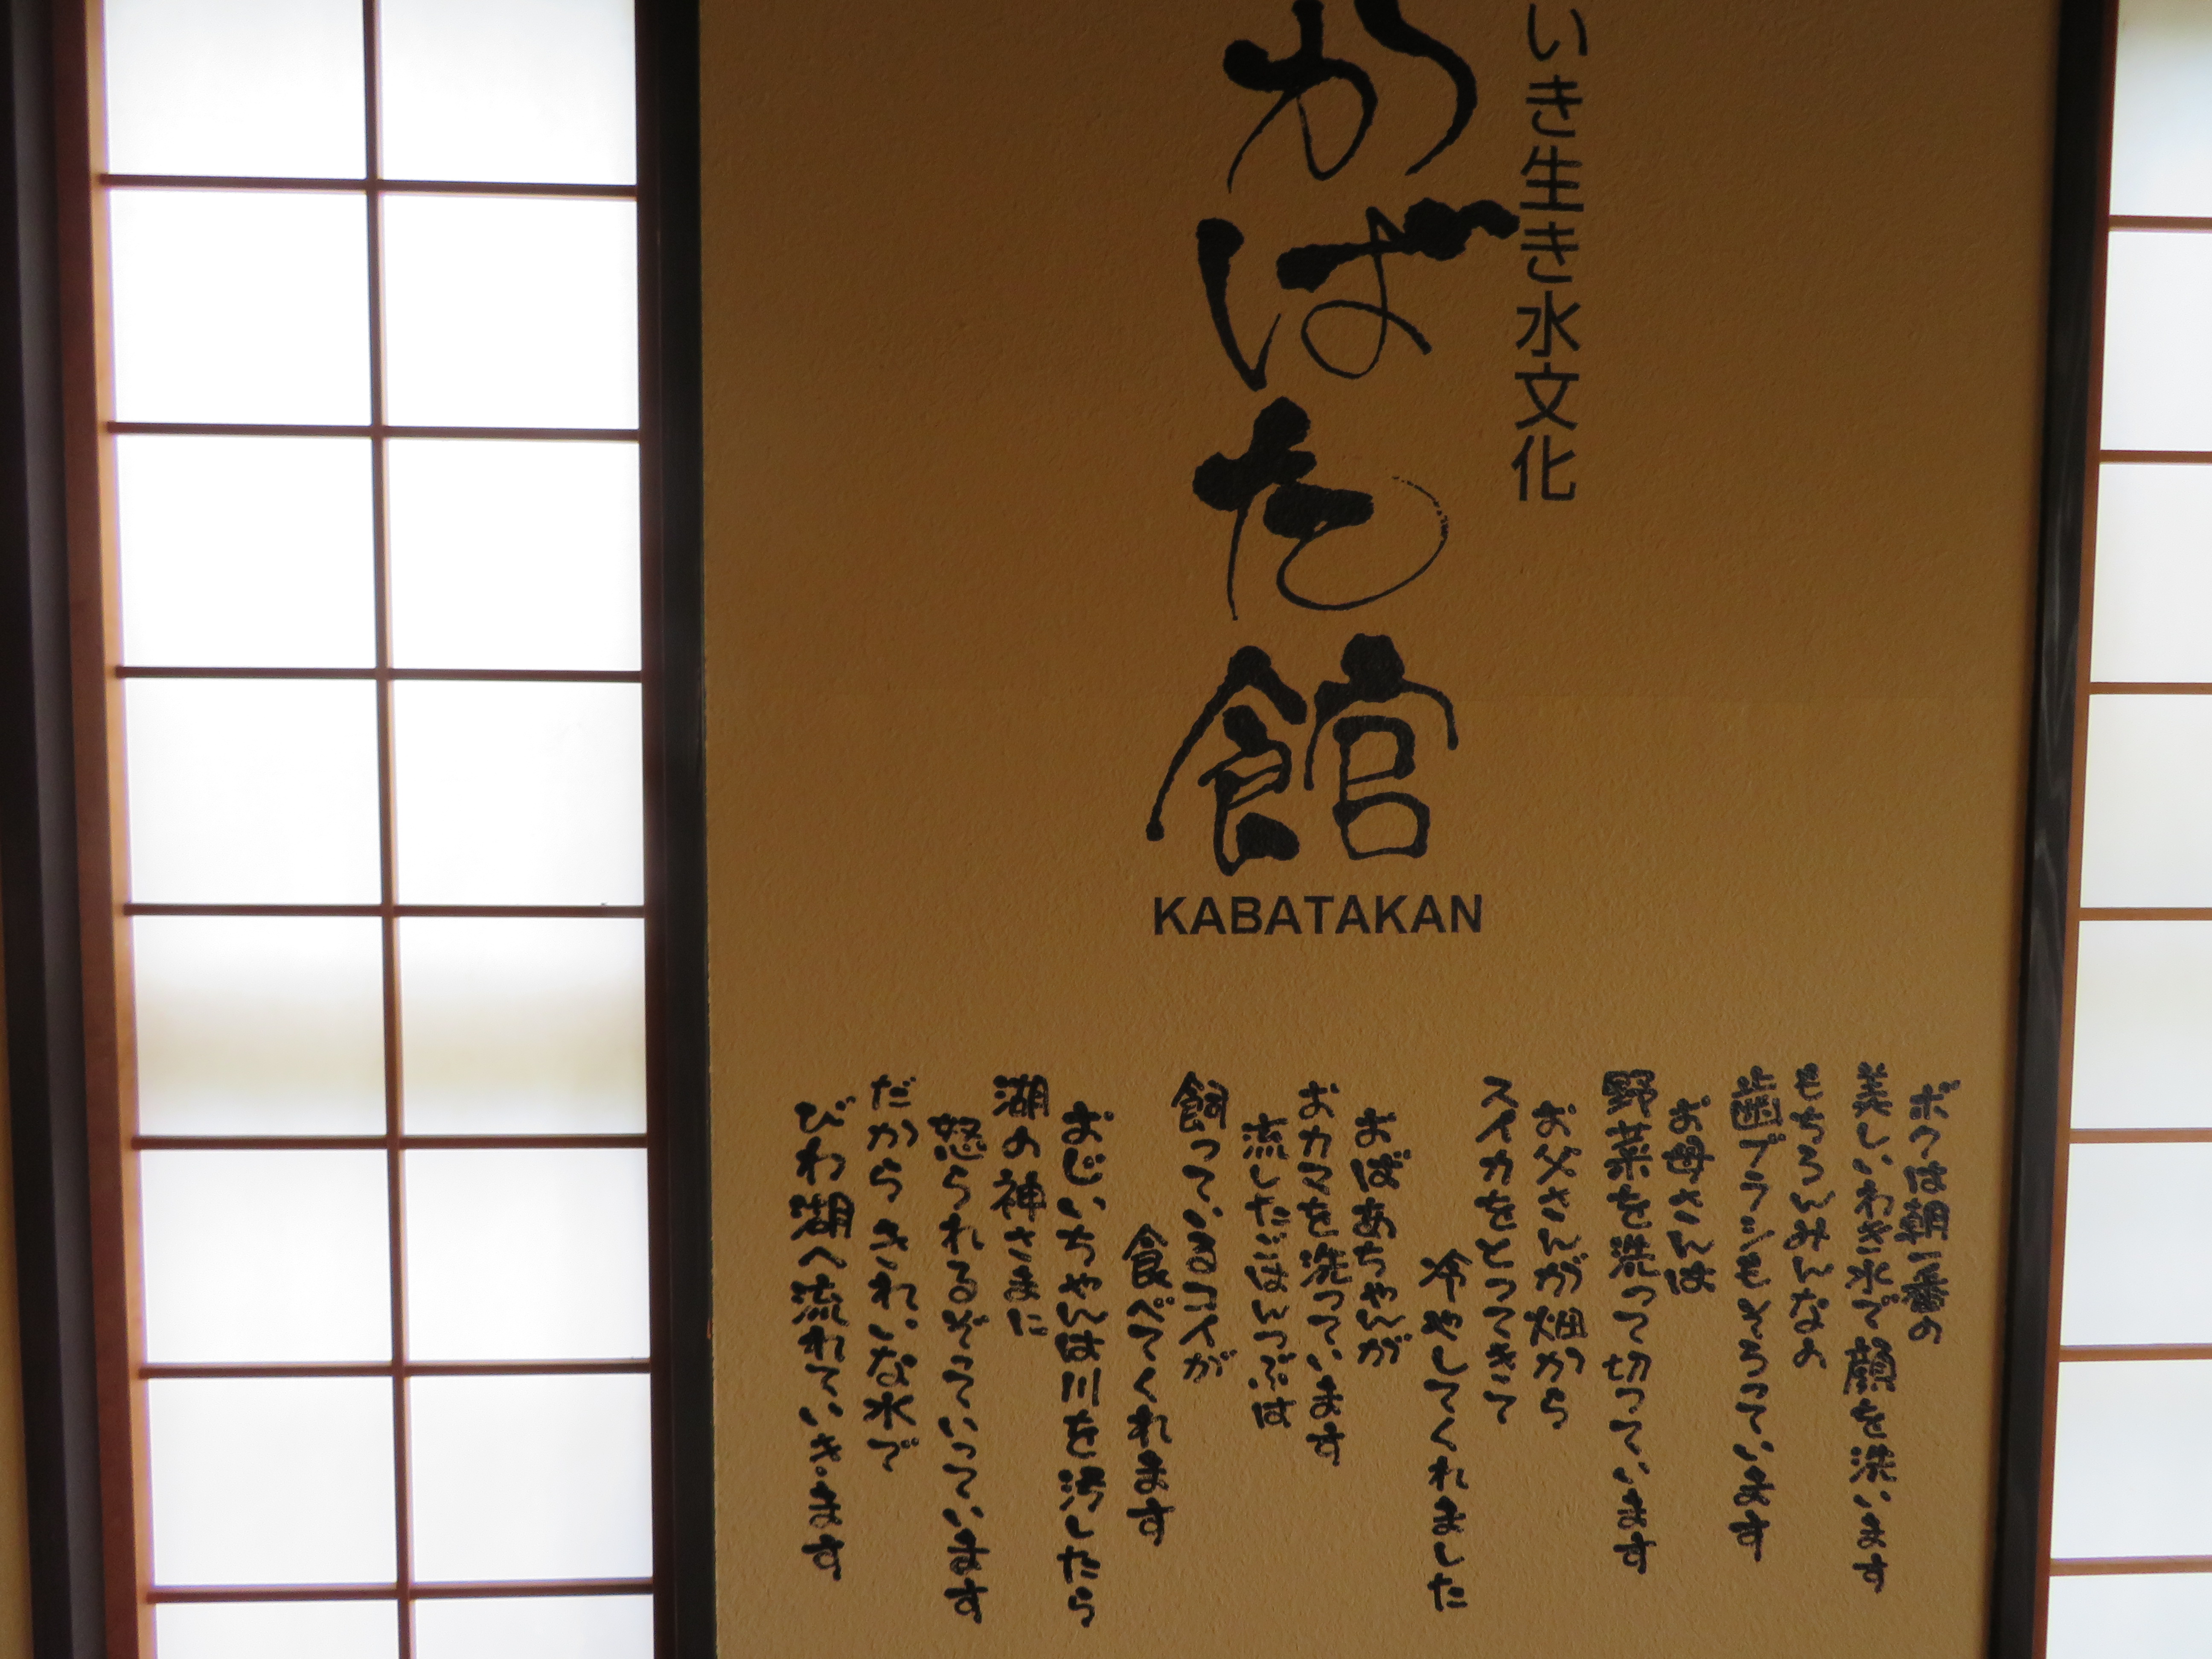 いき生き水文化
かばた館
KABATAKAN
ボクは朝一番の
美しいわき水で顔を洗います
もちろんみんなの
歯ブラシもそろっています
お母さんは
野菜を洗って切っています
お父さんが畑から
スイカをとってきて
冷やしてくれました
おばあちゃんが
おカマを洗っています
流したごはんつぶは
飼っているコイが
食べてくれます
おじいちゃんは川を汚したら
湖の神さまに
怒られるぞっていっています
だからきれいな水で
びわ湖へ流れていきます